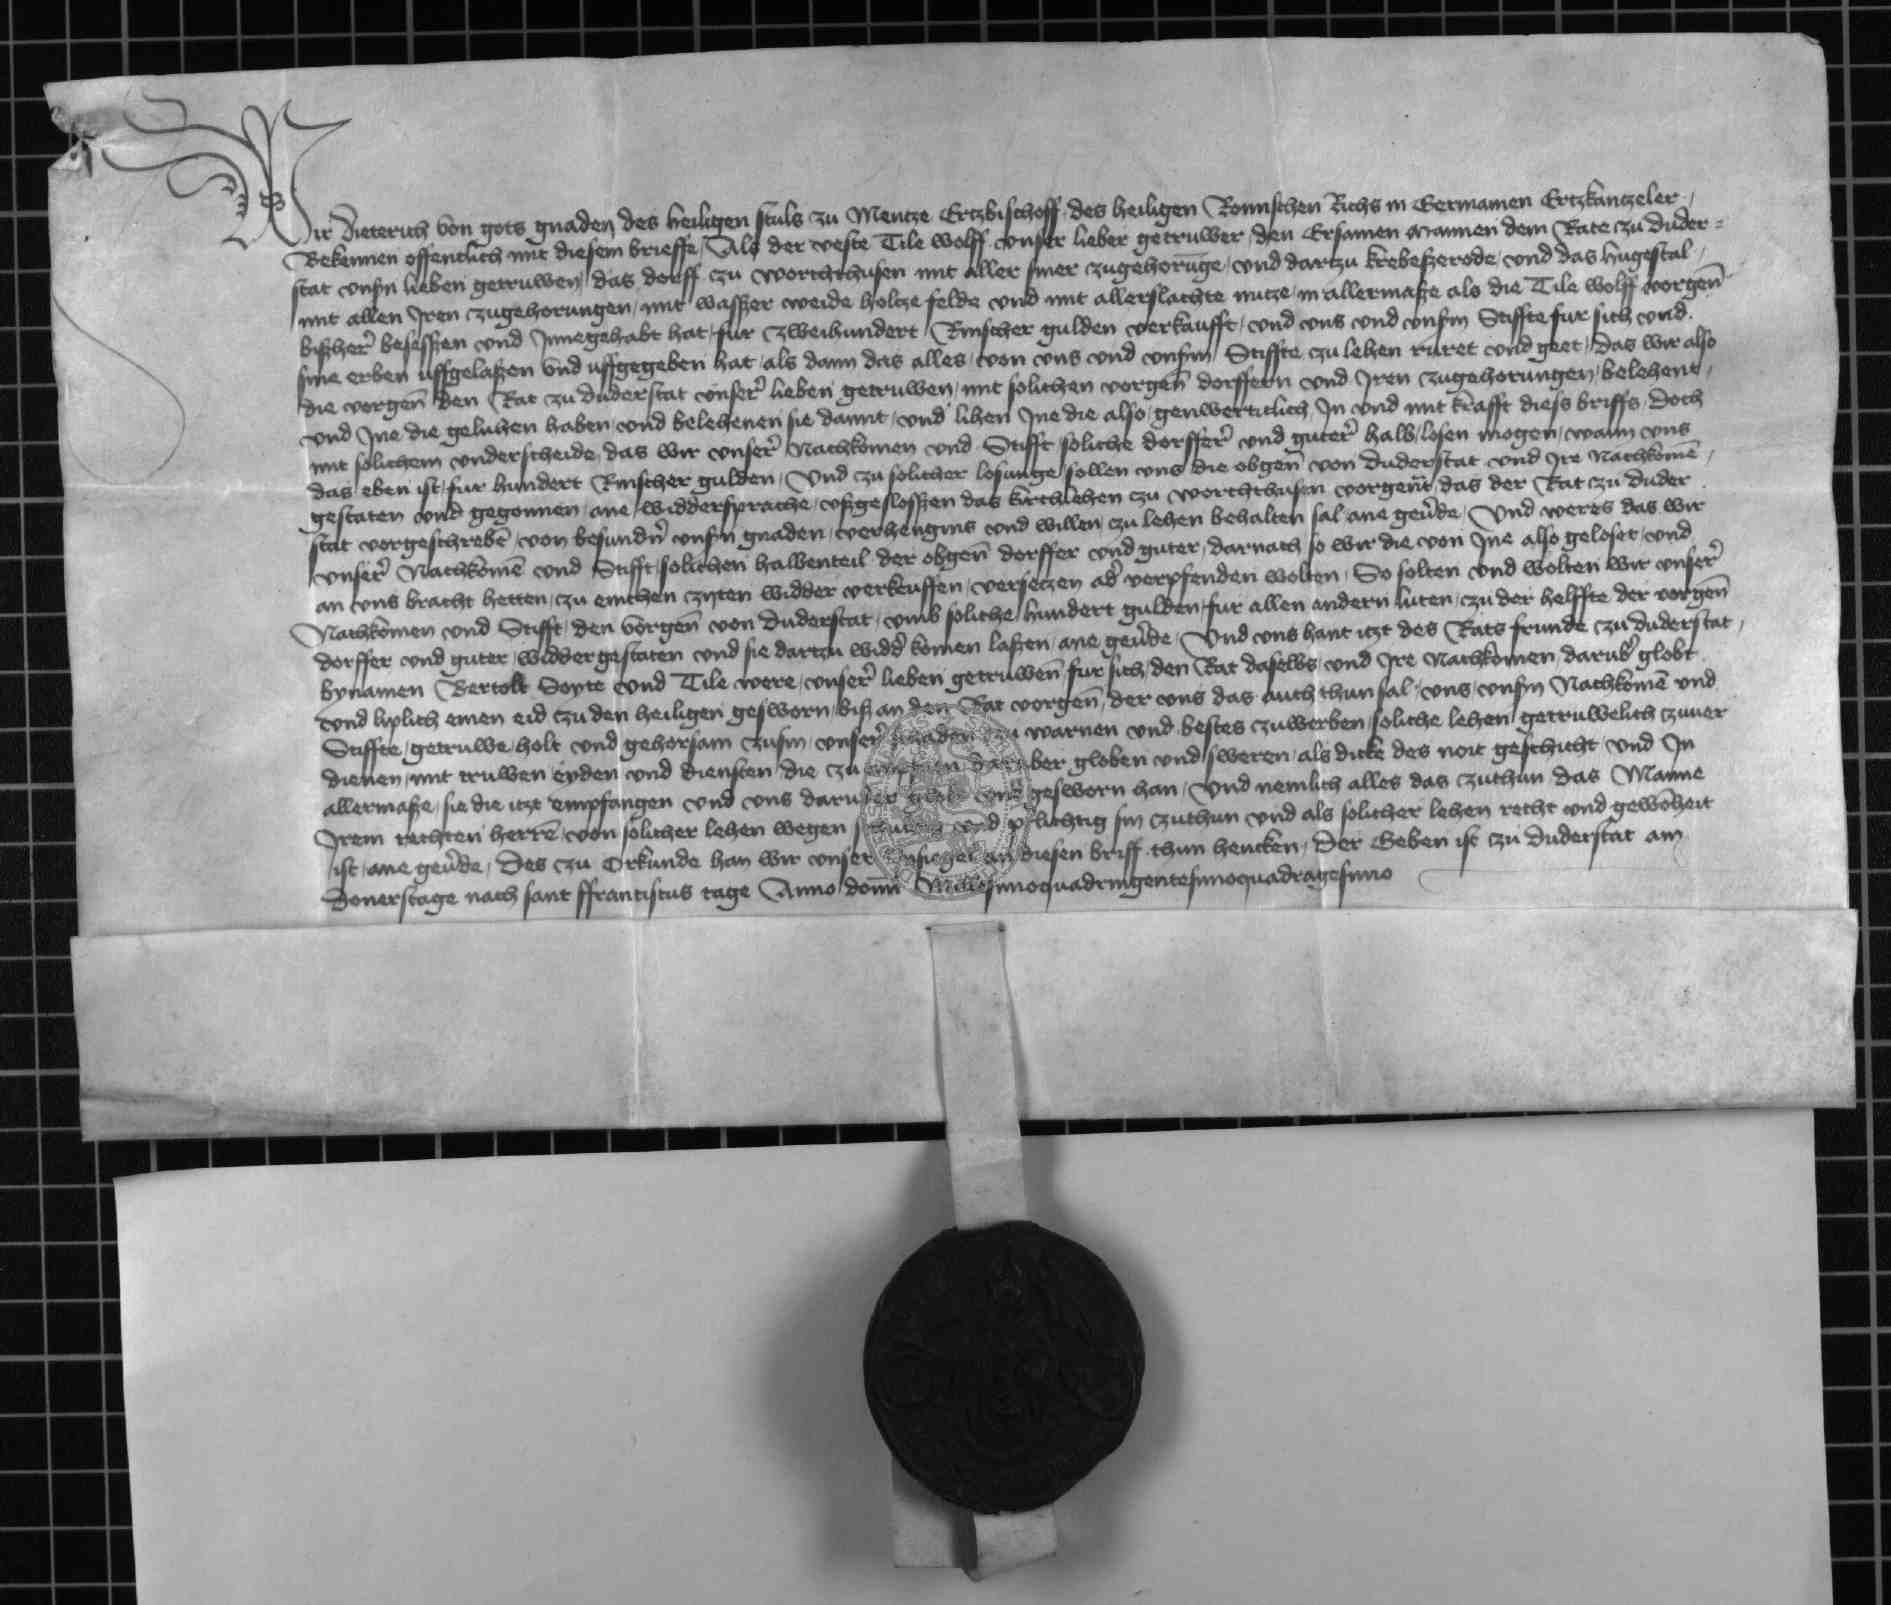 Wir Dieterich von gots gnaden des heiligen stuls zu Mentze Ertzbischoff des heiligen Romischen Richs in Germanien Ertzkantzeler /
Bekennen offentlich mit diesem brieffe / Als der veste Tile wolff unser lieber getruwer / den Ersamen mannen dem Rate zu Duder=
stat unsn lieben getruwen / das dorff zu worchthusen mit aller siner zugehorūge / und dartzu krebeßerode / und das hugestal /
mit allen Jren zugehorungen / mit waßer weide holtze felde und mit allerslachte nutze / in allermaße als die Tile wolff vorgen̄
bißher beseßen und Jnnegehabt hat / fur zweihundert Rinscher gulden verkaufft / und uns und unsm Stiffte fur sich und
sine erben uffgelaßen und uffgegeben hat / als dann das alles / von uns und unsm Stiffte zu lehen ruret und geet / das wir also
die vorgen̄ den Rat zu duderstat unser lieben getruwen / mit solichen vorgen̄ dorffern und Jren zugehorungen / belehent /
und Jne die geluhen haben / und belehenen sie damit / und lihen Jne die also / genwerticlich / Jn und mit krafft dieß briffs / doch
mit solichem underscheide / das wir unser Nachkomen und Stifft soliche dorffer und guter halb / losen mogen / wann uns
das eben ist / fur hundert Rinscher gulden / Und zu solicher losunge sollen uns die obgen̄ von duderstat und Jre nachkomē /
gestaten und gegonnen / ane widdersprache / ußgesloßen das kirchlehen zu worchthusen vorgen̄t / das der Rat zu duder
stat vorgeschrebē / von besundn̄ unsn gnaden / verhengnis und willen / zu lehen behalten sal / ane gev̄de / Und weres das wir
unser Nachkomē und Stifft / solichen halbenteil der obgen̄ dorffer und guter / darnach so wir die von Jne also geloset / und
an uns bracht hetten / zu einchen zyten widder verkeuffen / versetzen ad̄ verpfenden wolten / So solten und wolten wir unser
Nachkomen und Stifft / den vorgen̄ von duderstat / umb soliche hundert gulden / fur allen andern luten / zu der helffte der vorgen̄
dorffer und guter / widder gestaten und sie dartzu widd̄ komen laßen / ane gev̄de / Und uns hant itzt des Rats frunde zu duderstat /
bynamen Bertolt Soyte und Tile were / unser lieben getruwen̄ / fur sich / den Rat daselbs und Jre Nachkomen / darub̄ globt
und liplich einen eid zu den heiligen gesworn / biß an den Rat vorgen̄ / der uns das auch thun sal / uns / unsm Nachkomē und
Stiffte / getruwe / holt und gehorsam zusin / unser schaden zu warnen und bestes zuwerben / soliche lehen getruwelich zuuer
dienen / mit truwen eyden und diensten / die zu empfaen darober globen und / sweren / als dicke des noit geschicht / und Jn
allermaße / sie die itzt empfangen und uns daruber globt und gesworn han / Und nemlich alles das zuthun das Manne
Jrem rechten herrē / von solicher lehen wegen schuldig und pflichtig sin zuthun und als solicher lehen recht und gewoheit
ist / ane gev̄de / Des zu Orkunde han wir unser Ingsiegel an diesen briff thun hencken / Der Geben ist zu duderstat am
Donerstage nach sant ffrancistus tage Anno domī Millesimoquadringentesimoquadragesimo